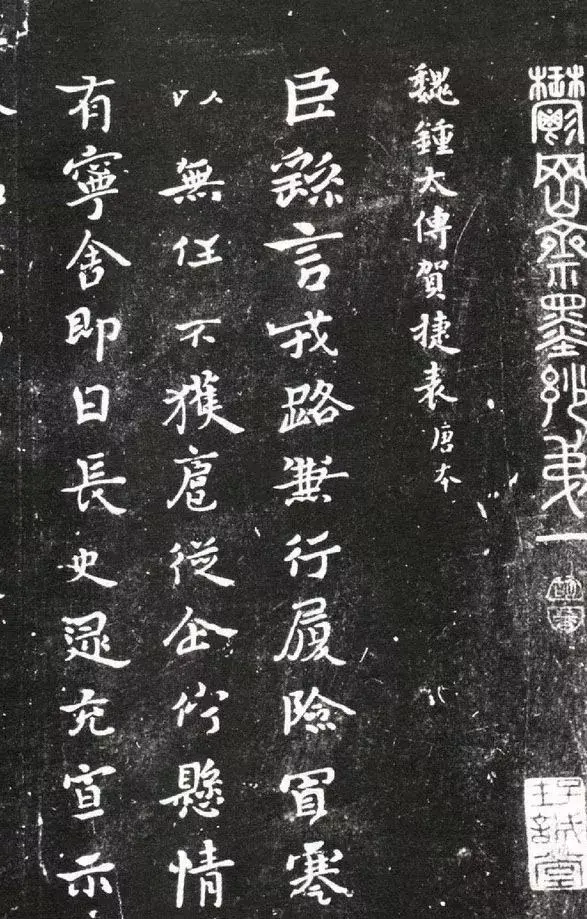 鬱岡齋墨妙弟一
魏鍾太傅賀捷表唐本
臣繇言戎路兼行履險冒寒
以無任不獲扈從企佇懸情
有寧舍即日長史逯充宣示